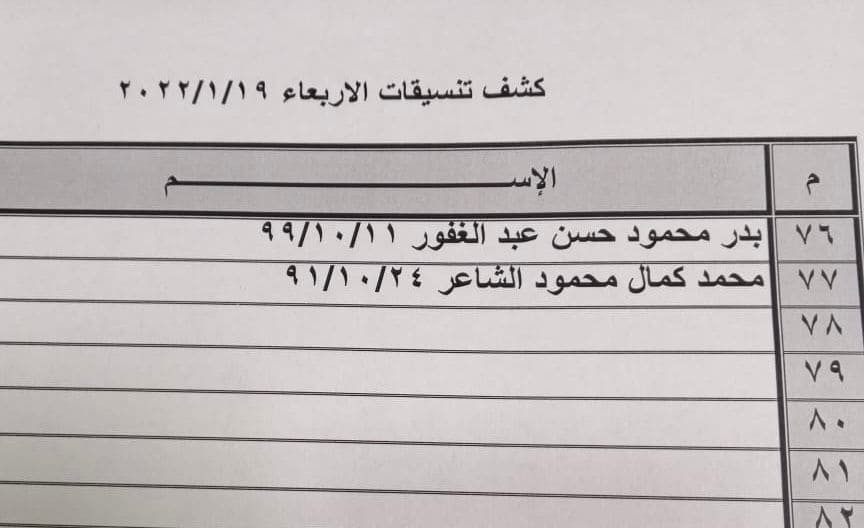 كشف تنسيقات الاربعاء ٢٠٢٢/١/١٩
م الإســـــــــــــــــم
٧٦ بدر محمود حسن عبد الغفور ٩٩/١٠/١١
٧٧ محمد كمال محمود الشاعر ٩١/١٠/٢٤
٧٨
٧٩
٨٠
٨١
٨٢